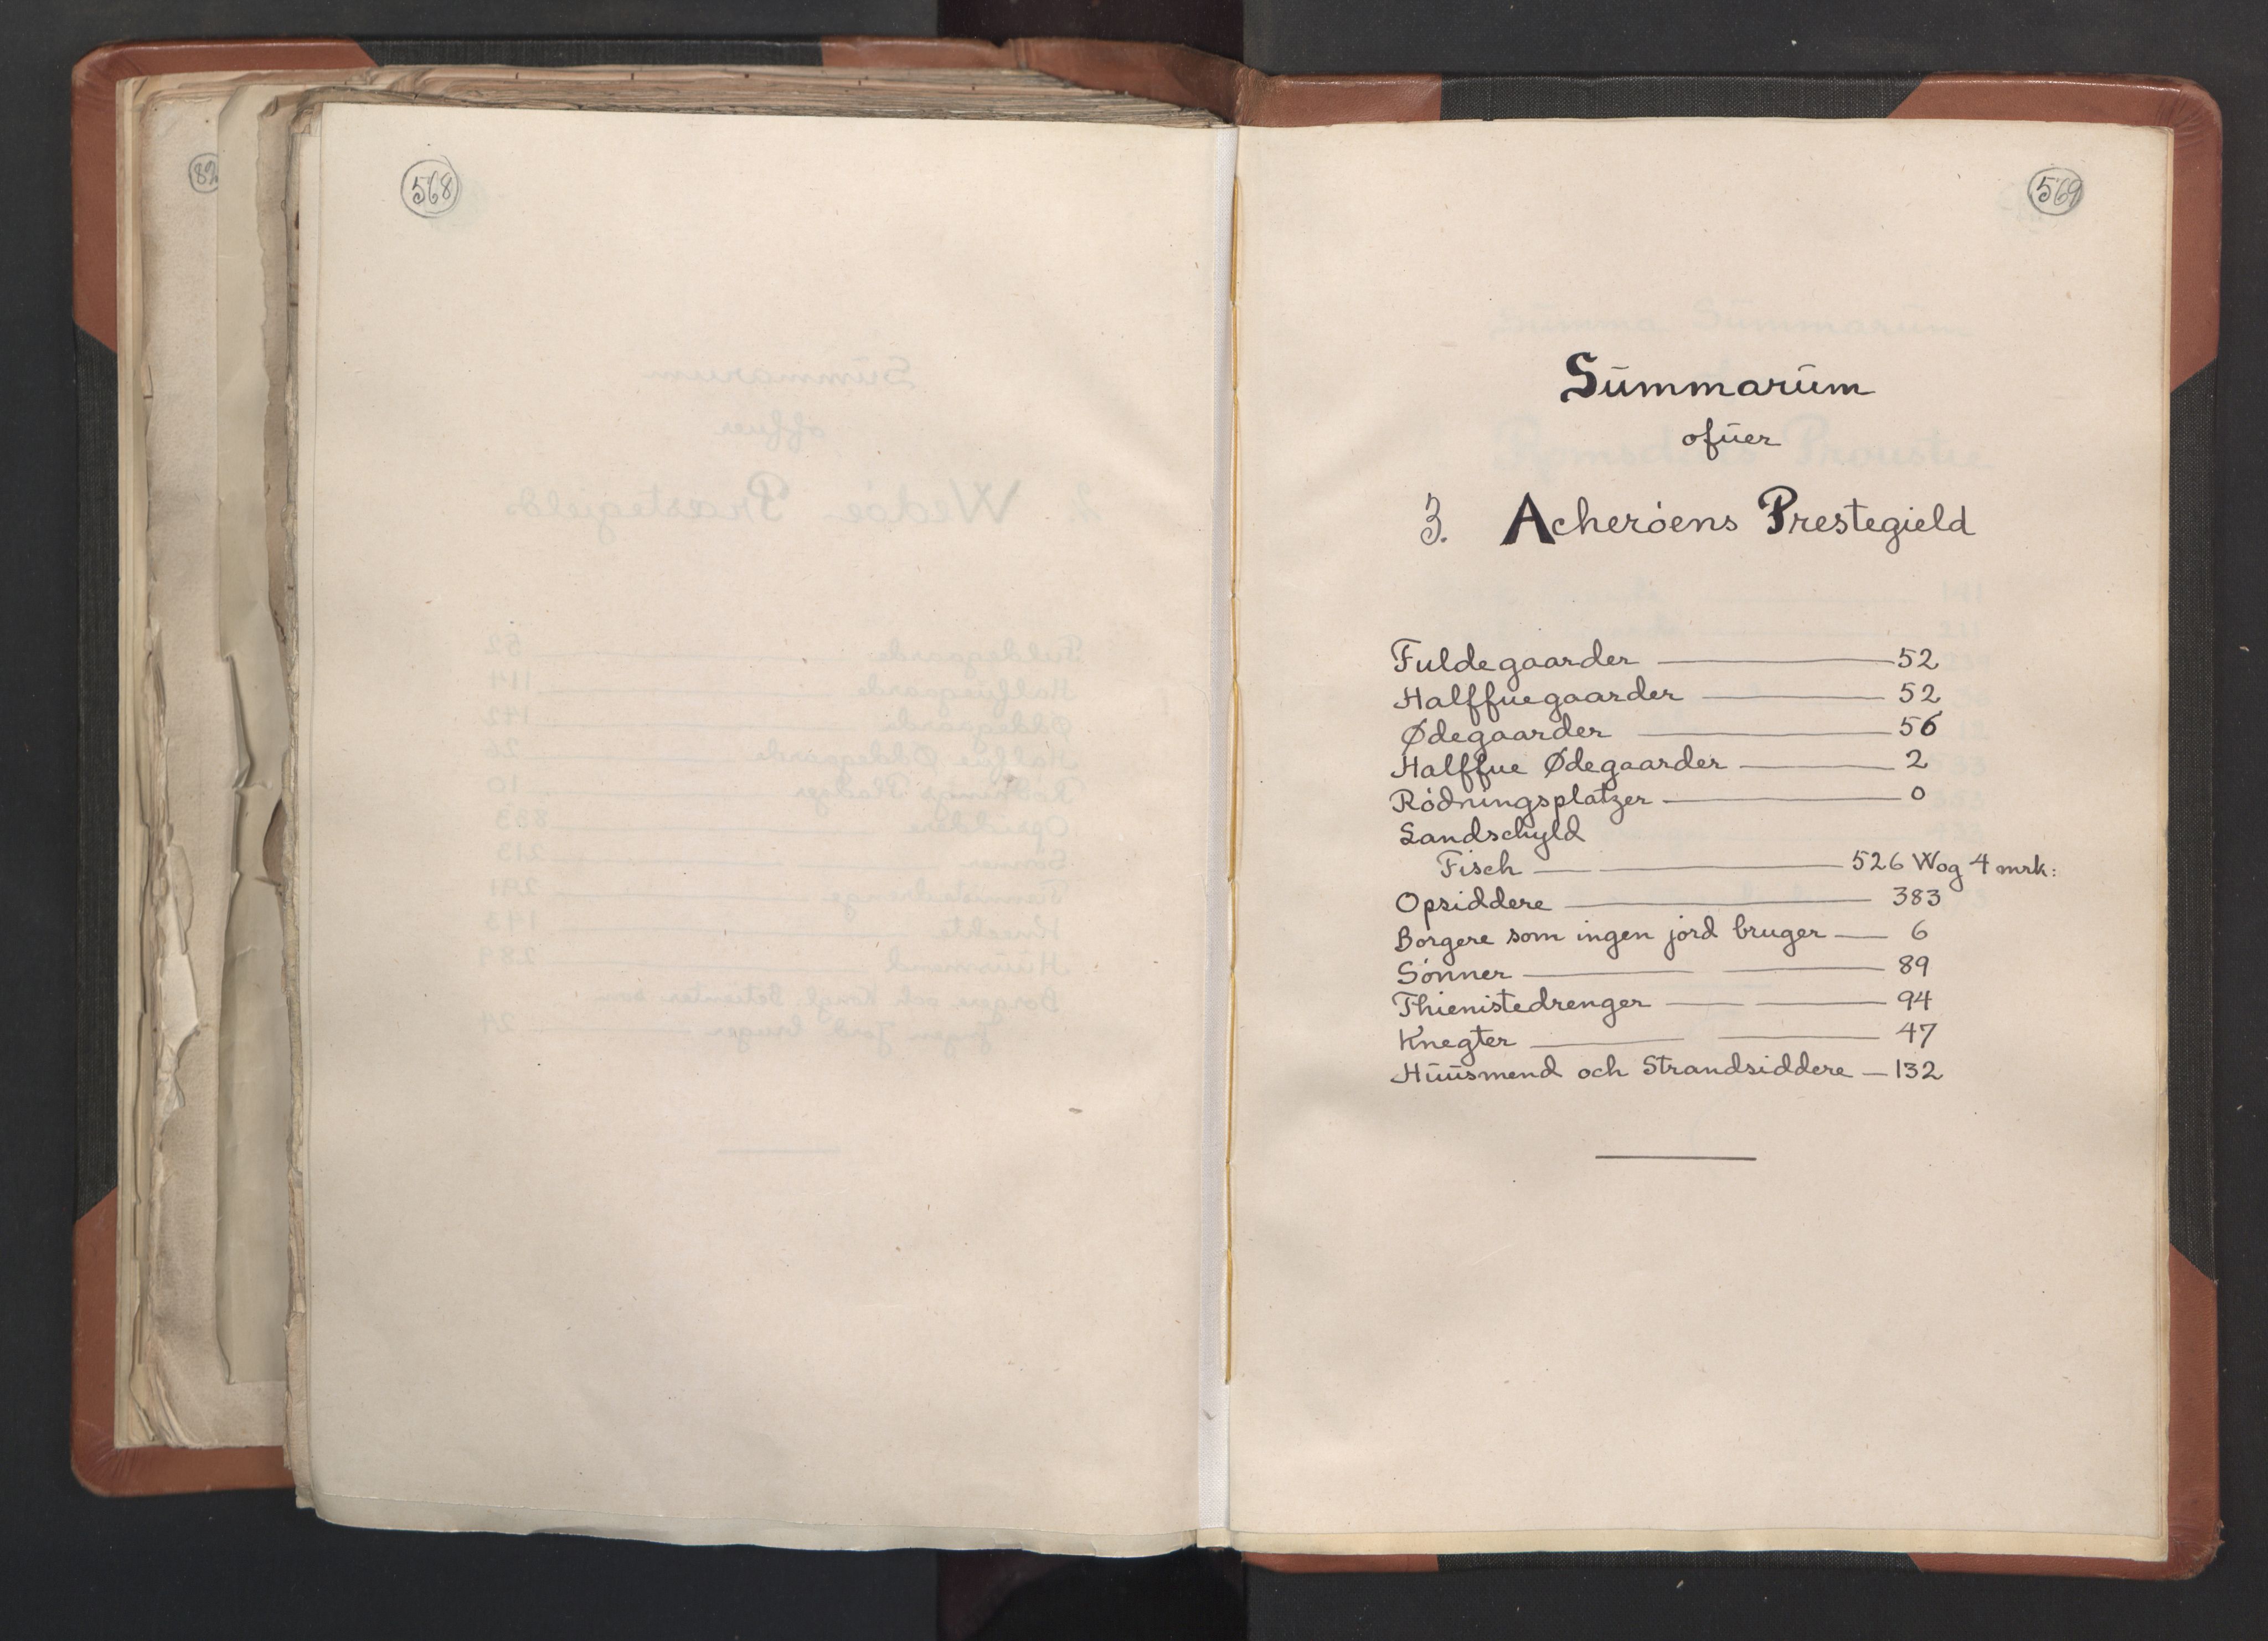 82
568
569
Summarŭm
ofŭer
3. Acherøens Prestegield
Fuldegaarder — 52
Halffuegaarder — 52
Ødegaarder — 56
Halffue Ødegaarder — 2
Rødningsplatzer — 0
Landschyld
Fisch — — 526 Wog 4 mrk:
Opsiddere — 383
Borgere som ingen jord bruger — 6
Sønner — — 89
Thienistedrenger — — 94
Knegter — — 47
Hŭŭsmend och Strandsiddere — 132